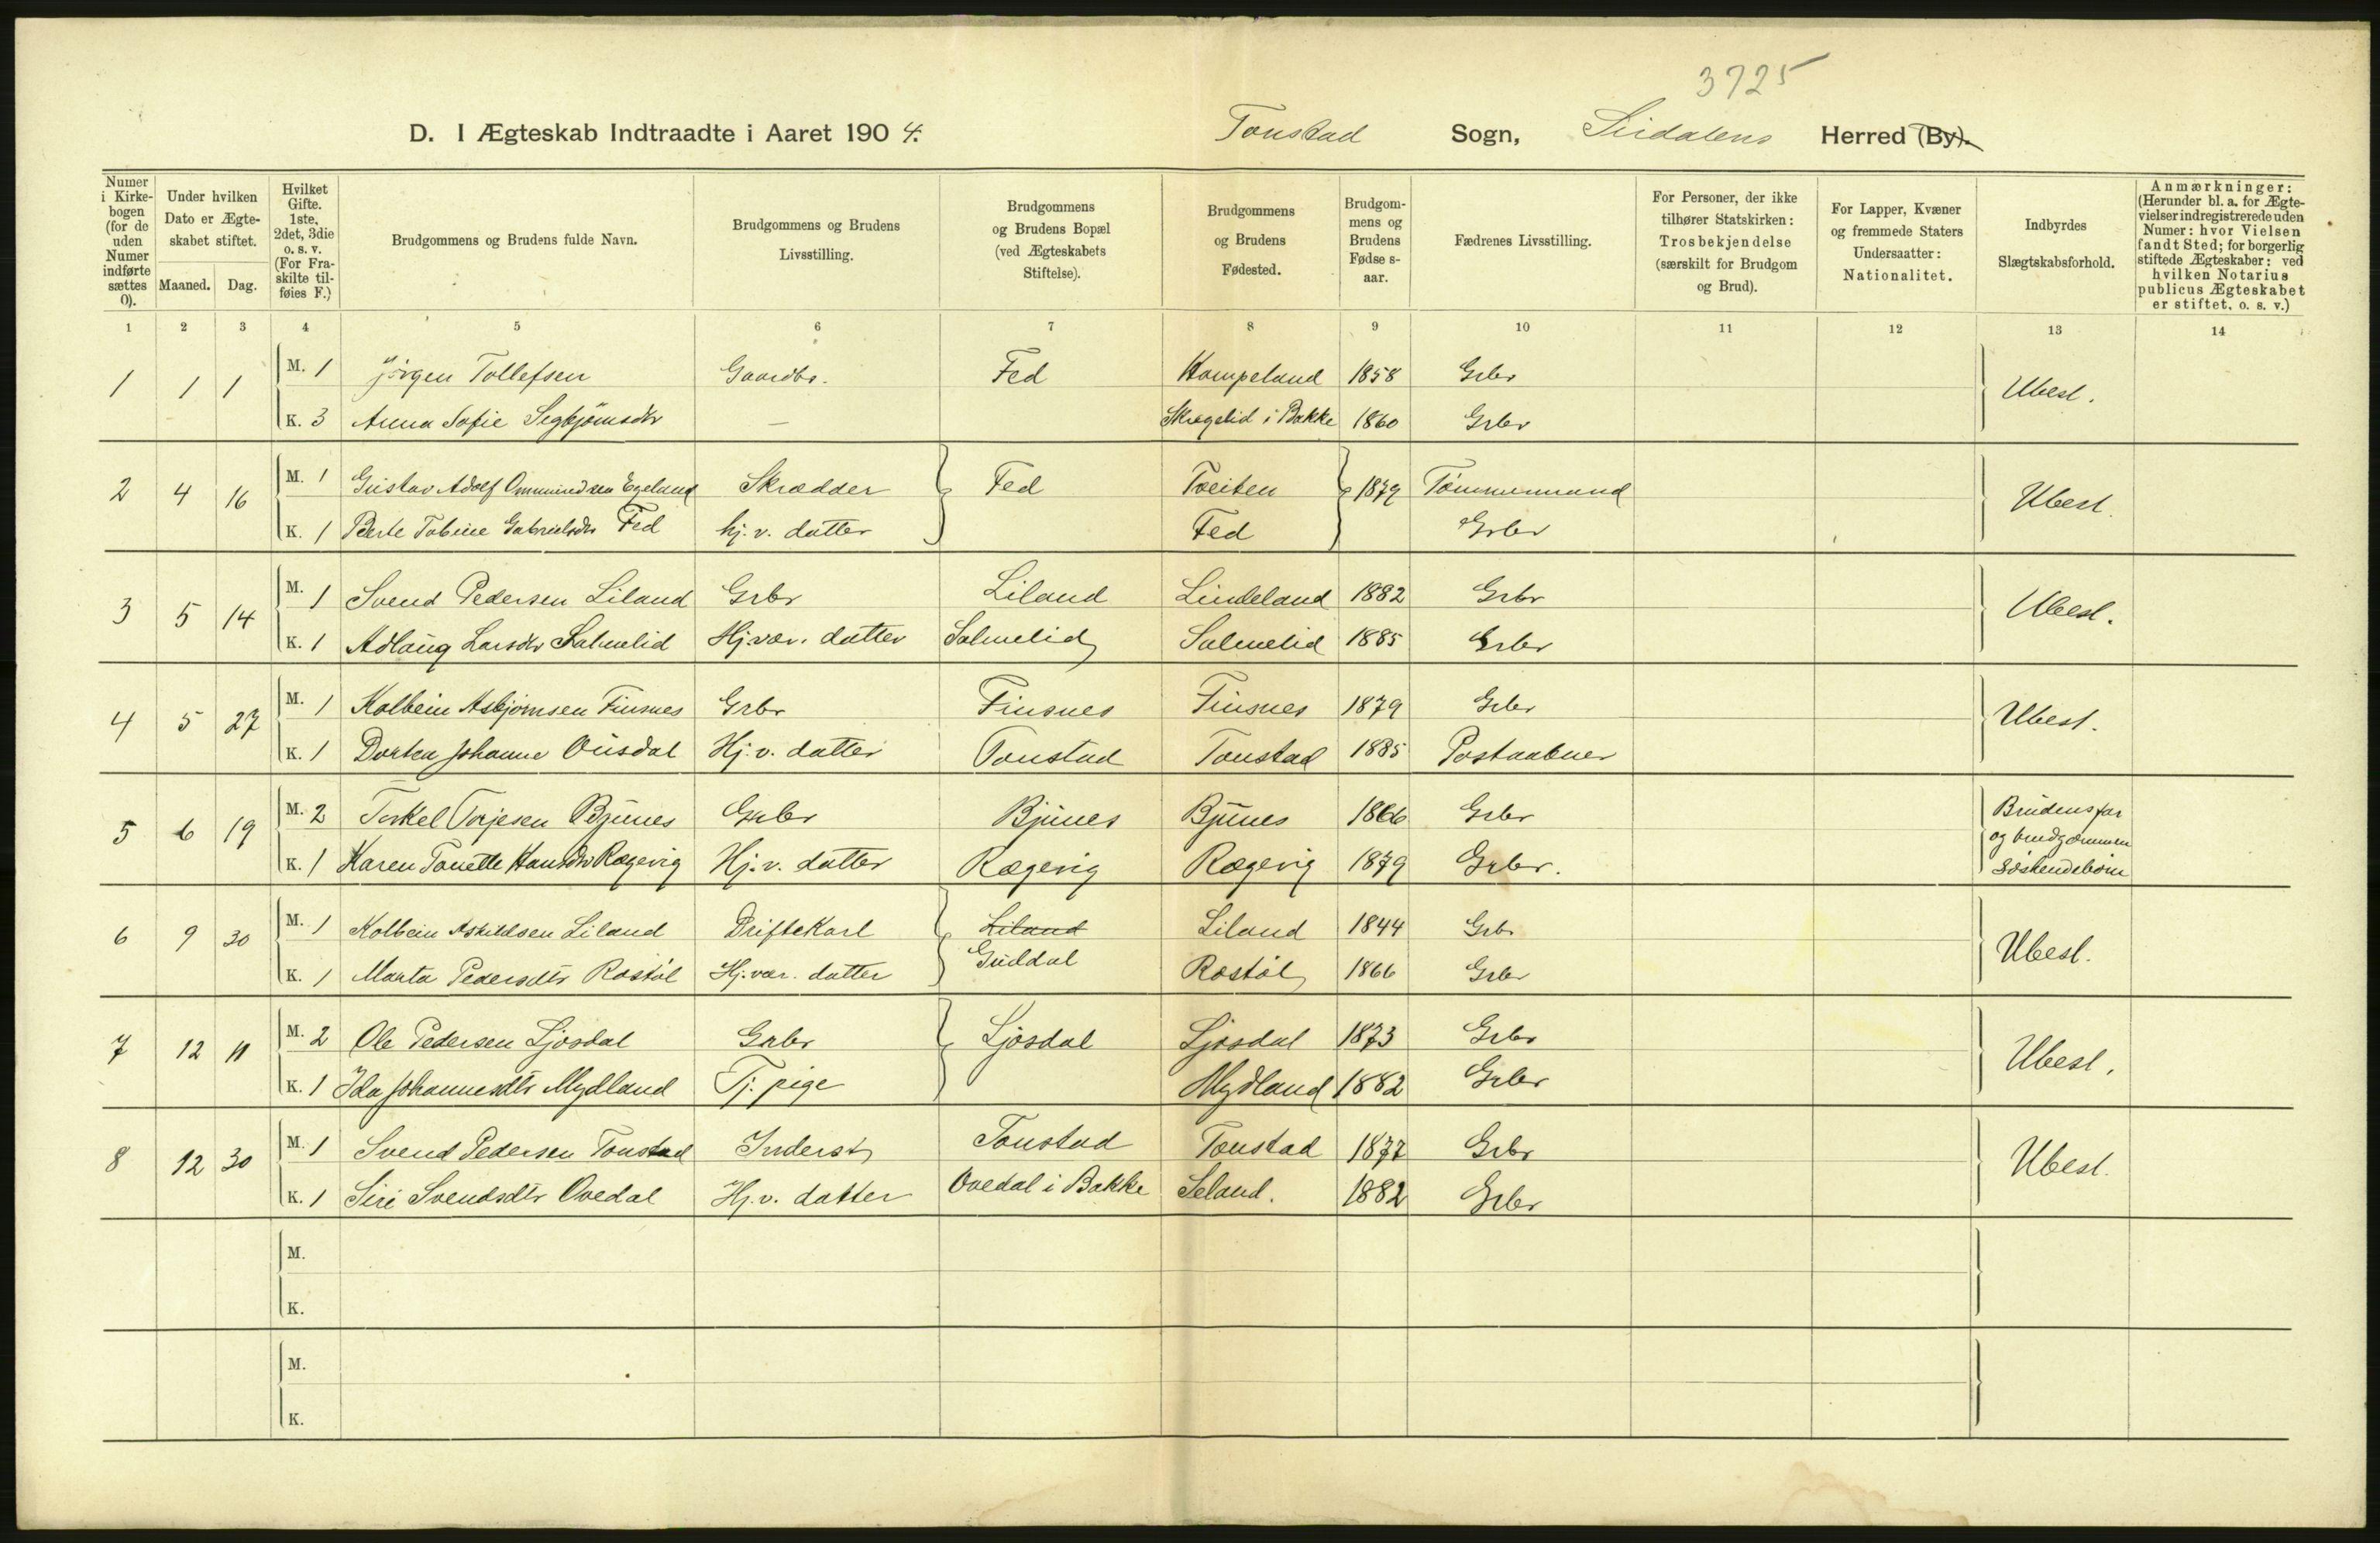 3725
D. I Ægteskab Indtraadte i Aaret 1904. Tonstad Sogn, Sirdalens Herred (By).
Numer i Kirkebogen (for de uden Numer indførte sættes 0).
Under hvilken Dato er Ægteskabet stiftet.
Maaned. Dag.
Hvilket Gifte. 1ste, 2det, 3die o. s. v. (For Fraskilte tilføies F.)
Brudgommens og Brudens fulde Navn.
Brudgommens og Brudens Livsstilling.
Brudgommens og Brudens Bopæl (ved Ægteskabets Stiftelse).
Brudgommens og Brudens Fødested.
Brudgommens og Brudens Fødselsaar.
Fædrenes Livsstilling.
For Personer, der ikke tilhører Statskirken: Trosbekjendelse (særskilt for Brudgom og Brud).
For Lapper, Kvæner og fremmede Staters Undersaatter: Nationalitet.
Indbyrdes Slægtskabsforhold.
Anmærkninger: (Herunder bl. a. for Ægtevielser indregistrerede uden Numer: hvor Vielsen fandt Sted; for borgerlig stiftede Ægteskaber: ved hvilken Notarius publicus Ægteskabet er stiftet, o. s. v.)
1 2 3 4 5 6 7 8 9 10 11 12 13 14
1 1 1 M. 1 Jörgen Tollefsen Gaardbr. Fed Hompeland 1858 Grbr Ubesl.
K. 3 Anna Sofie Segbjörnsdtr — Skregelid i Bakke 1860 Grbr
2 4 16 M. 1 Gustav Adolf Ommundsen Egeland Skrædder Fed Tveiten 1879 Tömmermand Ubesl.
K. 1 Berte Tobine Gabrielsdtr Fed hj. v. datter Fed Grbr
3 5 14 M. 1 Svend Pedersen Liland Grbr Liland Lindeland 1882 Grbr Ubesl.
K. 1 Adlaug Larsdtr Salmelid Hj. vær. datter Salmelid Salmelid 1885 Grbr
4 5 27 M. 1 Kolbein Asbjörnsen Finsnes Grbr Finsnes Finsnes 1879 Grbr Ubesl.
K. 1 Dortea Johanne Ousdal Hj. v. datter Tonstad Tonstad 1885 Postaabner
5 6 19 M. 2 Torkel Torjesen Bjunes Grbr Bjunes Bjunes 1866 Grbr Brudens far
og brudgommen
K. 1 Karen Tonette Hansdtr Rægevig Hj. v. datter Rægevig Rægevig 1879 Grbr. söskendebörn
6 9 30 M. 1 Kolbein Askildsen Liland Driftekarl Liland Liland 1844 Grbr Ubesl.
K. 1 Marta Pedersdtr Rostöl Hj. vær. datter Guddal Rostöl 1866 Grbr
7 12 11 M. 2 Ole Pedersen Ljosdal Grbr Ljosdal Ljosdal 1873 Grbr Ubesl.
K. 1 Ida Johannesdtr Mydland Tj. pige Mydland 1882 Grbr
8 12 30 M. 1 Svend Pedersen Tonstad Inderst Tonstad Tonstad 1877 Grbr Ubesl.
K. 1 Siri Svendsdtr Ovedal Hj. v. datter Ovedal i Bakke Seland. 1882 Grbr
M.
K.
M.
K.